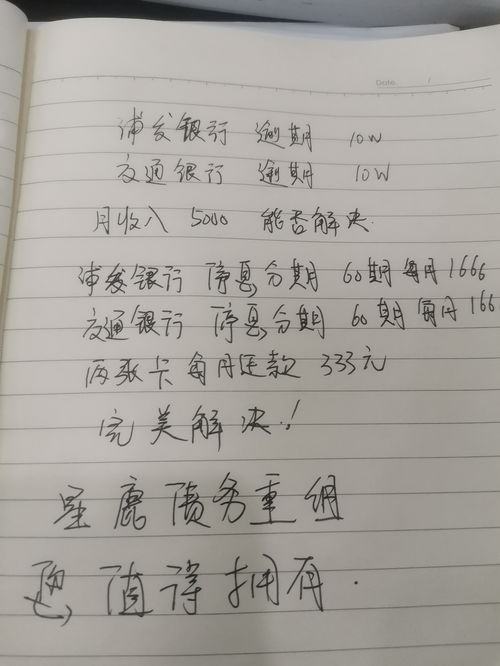 Date.
浦发银行 逾期 10W
交通银行 逾期 10W
月收入 5000 能否解决.
浦发银行 停息分期 60期 每月1666
交通银行 停息分期 60期 每月166
两张卡 每月还款 333元
完美解决!
星鹿债务重组
您值得拥有.